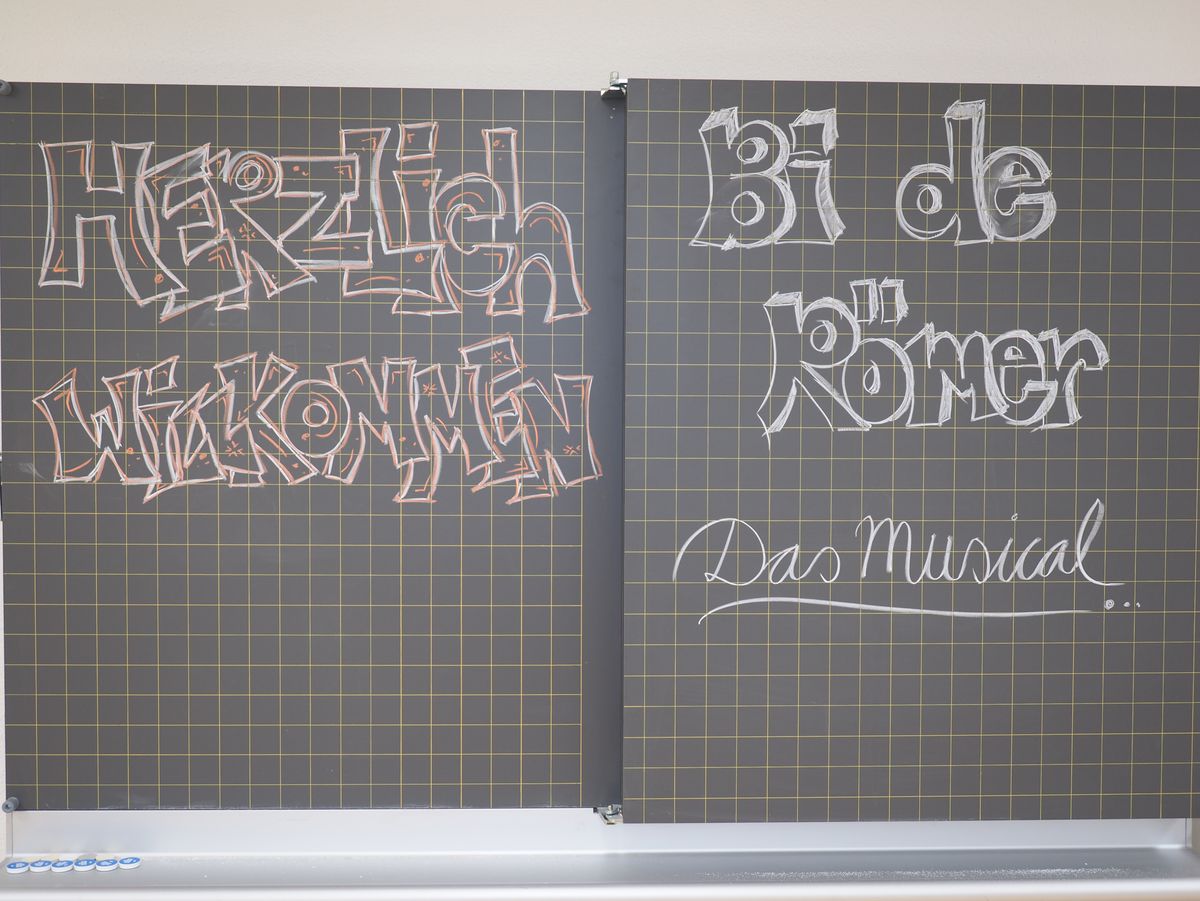 HERZLich
WillKOMMEN
Bi de
Römer
Das Musical...